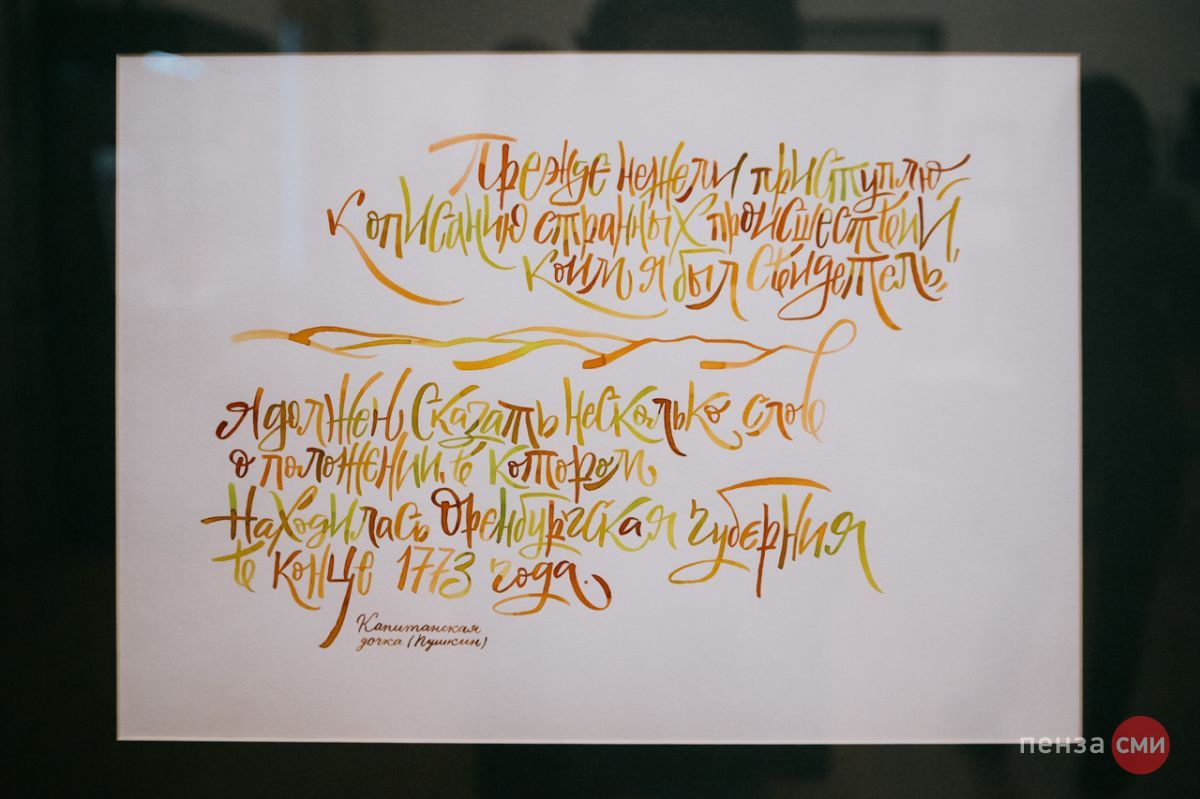 Прежде нежели приступлю
к описанию странных происшествий,
коим я был свидетель,
я должен сказать несколько слов
о положении, в котором
находилась Оренбургская губерния
в конце 1773 года.
Капитанская
дочка (Пушкин)
пенза сми